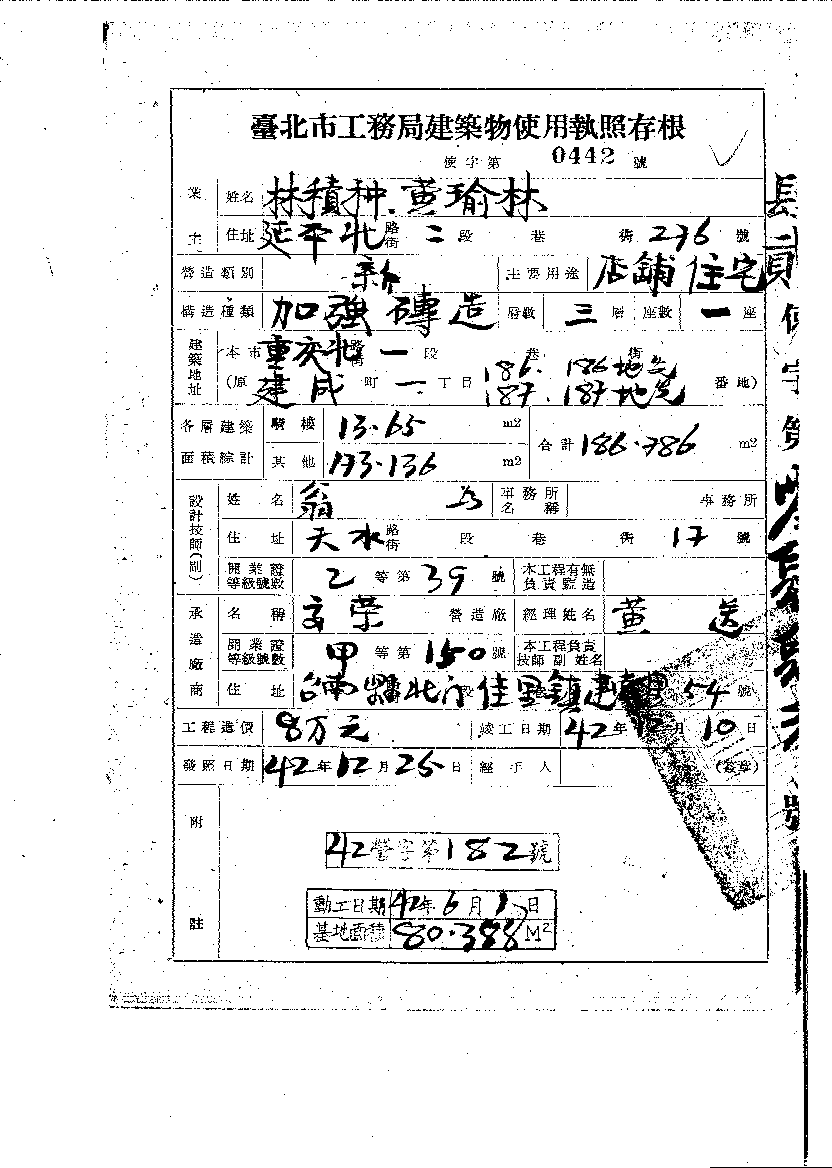 臺北市工務局建築物使用執照存根
使字第 0442 號
業主 姓名 林積种.黄瑜林
住址 延平北 路街 二 段 巷 衖 276 號
營造類別 新 主要用途 店舖住宅
構造種類 加強磚造 層數 三 層 座數 一 座
建築地址 本市 重庆北 路街 一 段 巷 衖
(原 建成 町 一 丁目 186. 186地先 187. 187地先 番地)
各層建築面積綜計 騎樓 13.65 m2 合計 186.786 m2
其他 173.136 m2
設計技師(副) 姓名 翁 事務所名稱 事務所
住址 天水 路街 段 巷 衖 17 號
開業證等級號數 乙 等第 39 號 本工程有無負責監造
承造廠商 名稱 文榮 營造廠 經理姓名 黄 送
開業證等級號數 甲 等第 150 號 本工程負責技師副姓名
住址 台南縣北門佳里鎮建 54 號
工程造價 8万元 竣工日期 42 年 月 10 日
發照日期 42 年 12 月 25 日 經手人 (簽章)
附註
42營字第182號
動工日期 42年6月1日
基地面積 80.388 M²
使字第
號